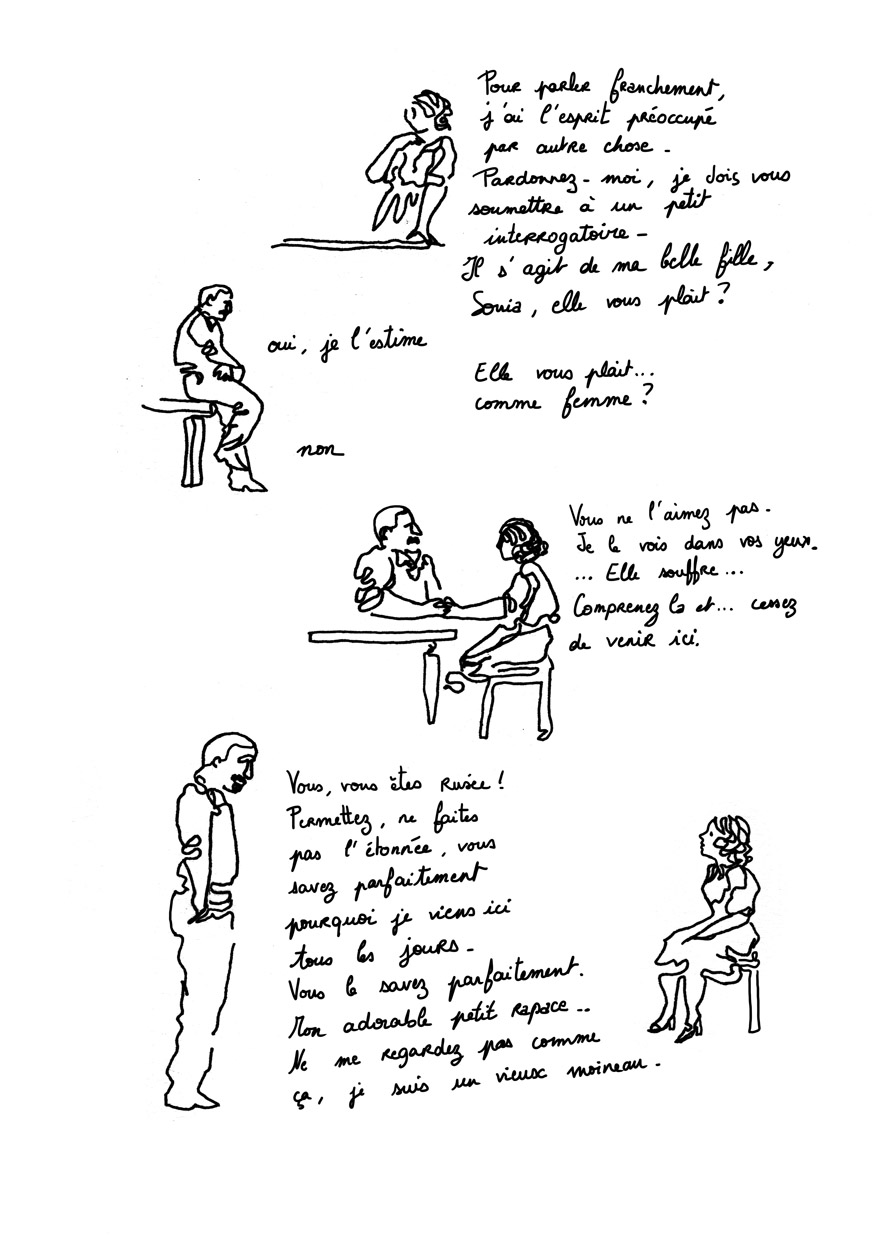 Pour parler franchement,
j'ai l'esprit préoccupé
par autre chose -
Pardonnez-moi, je dois vous
soumettre à un petit
interrogatoire -
Il s'agit de ma belle fille,
Sonia, elle vous plait ?
oui, je l'estime
Elle vous plait...
comme femme ?
non
Vous ne l'aimez pas -
Je le vois dans vos yeux.
... Elle souffre ...
Comprenez la et... cessez
de venir ici.
Vous, vous êtes rusée !
Permettez, ne faites
pas l'étonnée, vous
savez parfaitement
pourquoi je viens ici
tous les jours -
Vous le savez parfaitement.
Mon adorable petit rapace ..
Ne me regardez pas comme
ça, je suis un vieux moineau -